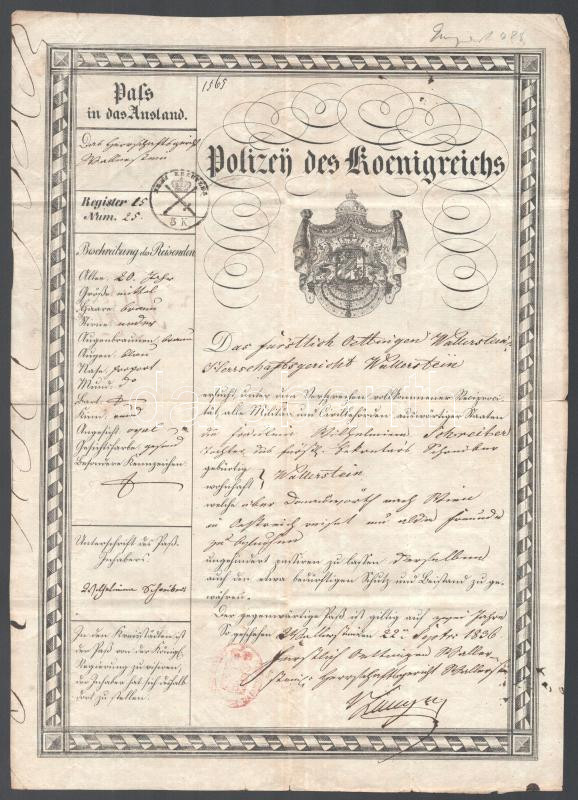 1565
Paſs
in das Ausland.
Das Herrschaftsgericht
Wallerstein
Register 15
Num. 25.
5 K
Beschreibung des Reisenden
Alter 20 Jahr
Größe mittel
Haare braun
Stirne
Augenbraunen braun
Augen blau
Nase proport
Mund do
Bart
Kinn rund
Angesicht oval
Gesichtsfarbe gesund
Besondere Kennzeichen
Unterschrift des Paß-
Inhabers
Wilhelmine Schreiber
In den Kreisstädten ist
der Paß von der Königl.
Regierung zu visiren,
der Inhaber hat sich deshalb
dort zu stellen.
Polizeÿ des Koenigreichs
Das fürstlich Oettingen Wallerstein.
Herrschaftsgericht Wallerstein
ersucht unter dem Versprechen vollkommener Reciproci-
tät, alle Militär und Civilbehörden auswärtiger Staaten
Wilhelmine Schreiber
Tochter des fürstl. Schreiber
gebürtig
wohnhaft } Wallerstein
welche über Donauwörth nach Wien
in Oestreich reiset um alda Freunde
zu besuchen
ungehindert passiren zu lassen derselben
auch den etwa bedürftigen Schutz und Beistand zu ge-
währen.
Der gegenwärtige Paß ist giltig auf zwei Jahre
So geschehen Wallerstein den 22n Septbr 1836
Fürstlich Oettingen Waller-
stein. Herrschaftsgericht Wallerstein